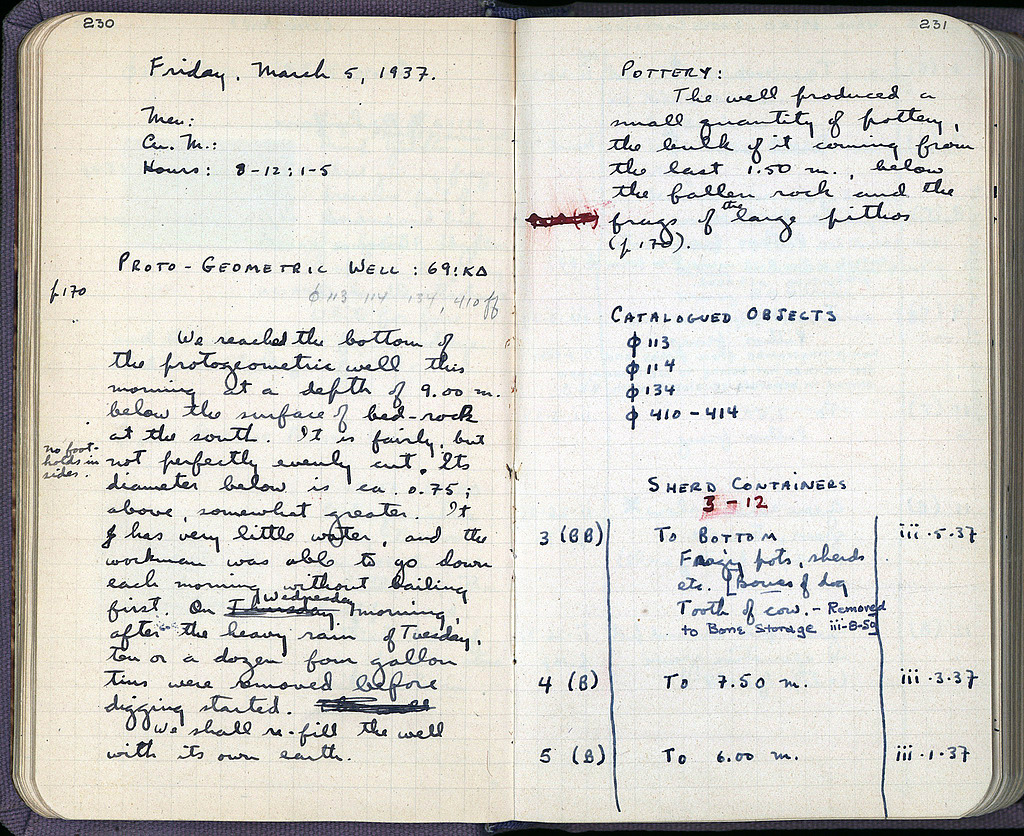 230
Friday, March 5, 1937.
Men:
Cu. M.:
Hours: 8-12; 1-5
PROTO-GEOMETRIC WELL : 69:ΚΔ
p 170
φ 113 114 134, 410 ff
We reached the bottom of
the protogeometric well this
morning at a depth of 9.00 m.
below the surface of bed-rock
at the south. It is fairly, but
no foot-
holds in
sides.
not perfectly evenly cut. Its
diameter below is ca. 0.75;
above, somewhat greater. It
has very little water, and the
workman was able to go down
each morning without bailing
first. On Thursday Wednesday morning,
after the heavy rain of Tuesday,
ten or a dozen four gallon
tins were removed before
digging started.
We shall re-fill the well
with its own earth.
231
POTTERY:
The well produced a
small quantity of pottery,
the bulk of it coming from
the last 1.50 m., below
the fallen rock and the
frags of the large pithos
(p 170).
CATALOGUED OBJECTS
φ 113
φ 114
φ 134
φ 410-414
SHERD CONTAINERS
3-12
3 (BB) TO BOTTOM iii.5.37
Fragy pots, sherds
etc. [Bones of dog
Tooth of cow. - Removed
to Bone Storage iii-8-50]
4 (B) To 7.50 m. iii.3.37
5 (B) To 6.00 m. iii.1.37